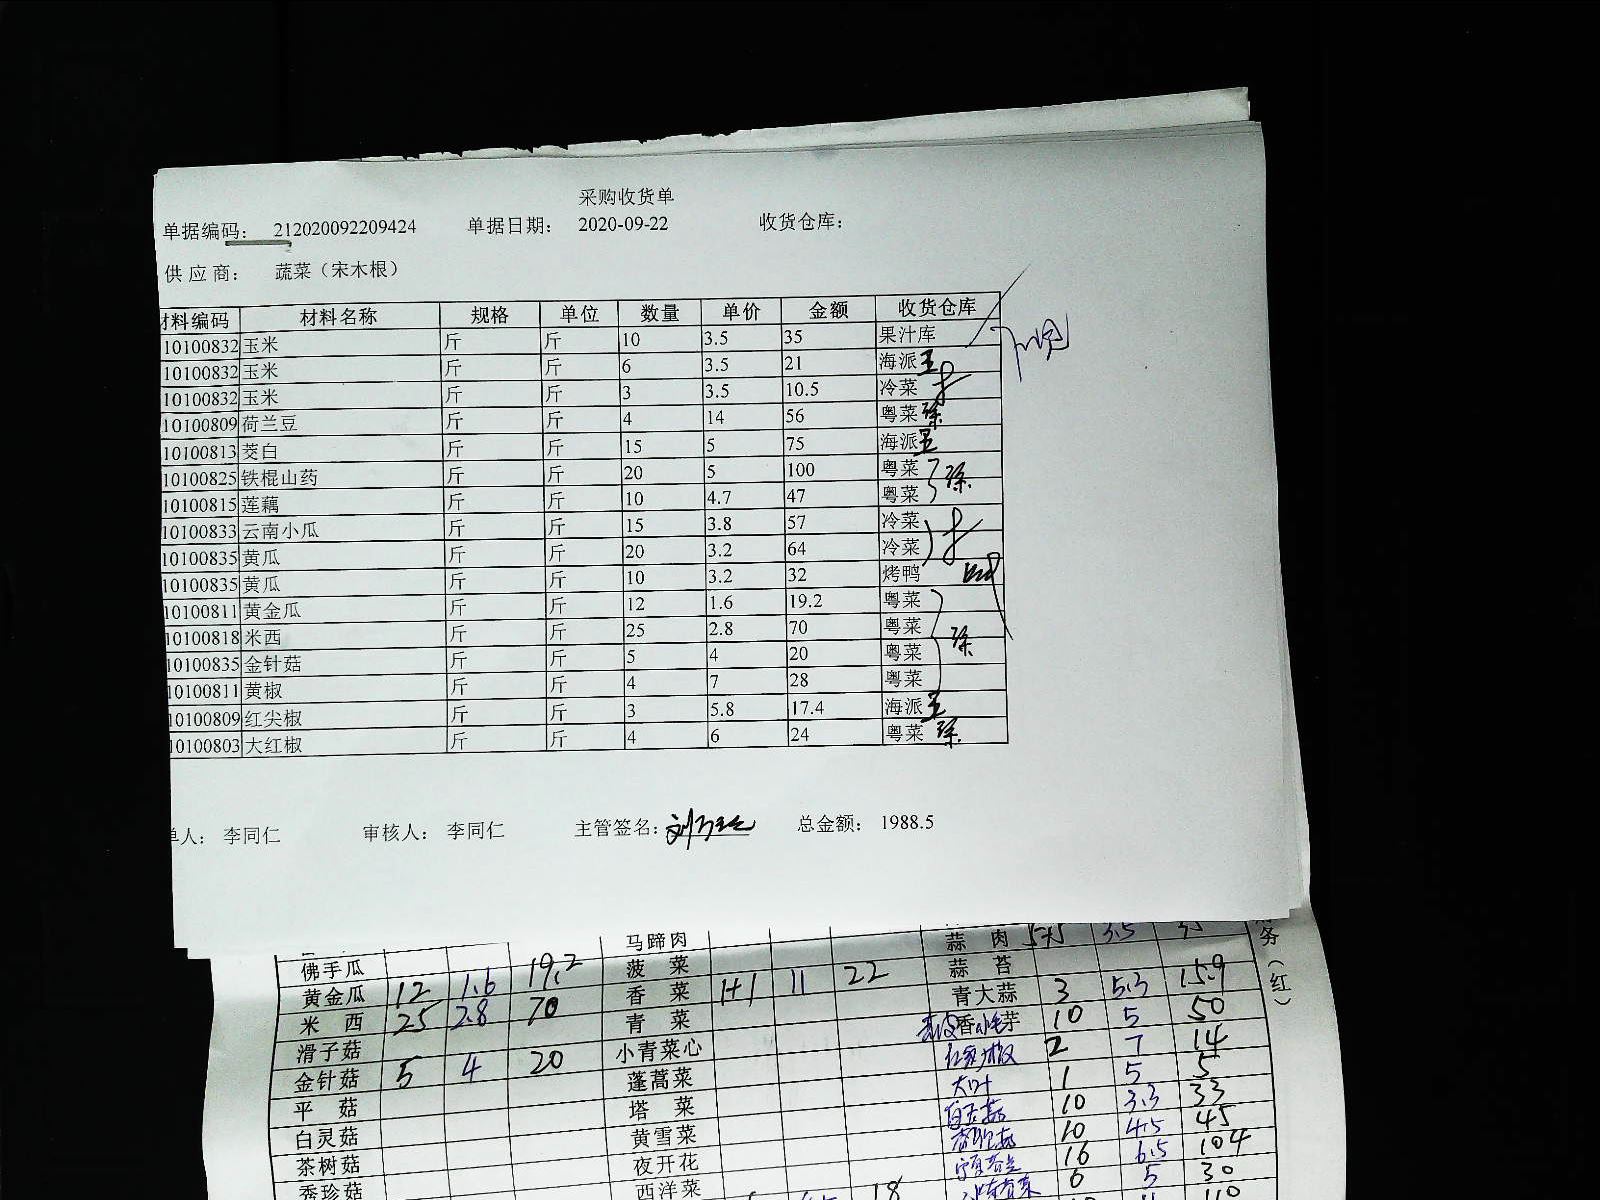 采购收货单
单据编码： 212020092209424 单据日期： 2020-09-22 收货仓库：
供应商： 蔬菜（宋木根）
材料编码 材料名称 规格 单位 数量 单价 金额 收货仓库
10100832 玉米 斤 斤 10 3.5 35 果汁库
10100832 玉米 斤 斤 6 3.5 21 海派 王
10100832 玉米 斤 斤 3 3.5 10.5 冷菜
10100809 荷兰豆 斤 斤 4 14 56 粤菜 徐
10100813 茭白 斤 斤 15 5 75 海派 王
10100825 铁棍山药 斤 斤 20 5 100 粤菜 徐
10100815 莲藕 斤 斤 10 4.7 47 粤菜
10100833 云南小瓜 斤 斤 15 3.8 57 冷菜
10100835 黄瓜 斤 斤 20 3.2 64 冷菜
10100835 黄瓜 斤 斤 10 3.2 32 烤鸭
10100811 黄金瓜 斤 斤 12 1.6 19.2 粤菜
10100818 米西 斤 斤 25 2.8 70 粤菜 徐
10100835 金针菇 斤 斤 5 4 20 粤菜
10100811 黄椒 斤 斤 4 7 28 粤菜
10100809 红尖椒 斤 斤 3 5.8 17.4 海派 王
10100803 大红椒 斤 斤 4 6 24 粤菜 徐
单人： 李同仁 审核人： 李同仁 主管签名： 总金额： 1988.5
马蹄肉 蒜肉 5+5 3.5 35
佛手瓜 菠菜 蒜苔
黄金瓜 12 1.6 19.2 香菜 1+1 11 22 青大蒜 3 5.3 15.9
米西 25 2.8 70 青菜 香芋 10 5 50
滑子菇 小青菜心 2 7 14
金针菇 5 4 20 蓬蒿菜 大叶 1 5 5
平菇 塔菜 10 3.3 33
白灵菇 黄雪菜 10 4.5 45
茶树菇 夜开花 16 6.5 104
秀珍菇 西洋菜 18 6 5 30
110
务（红）